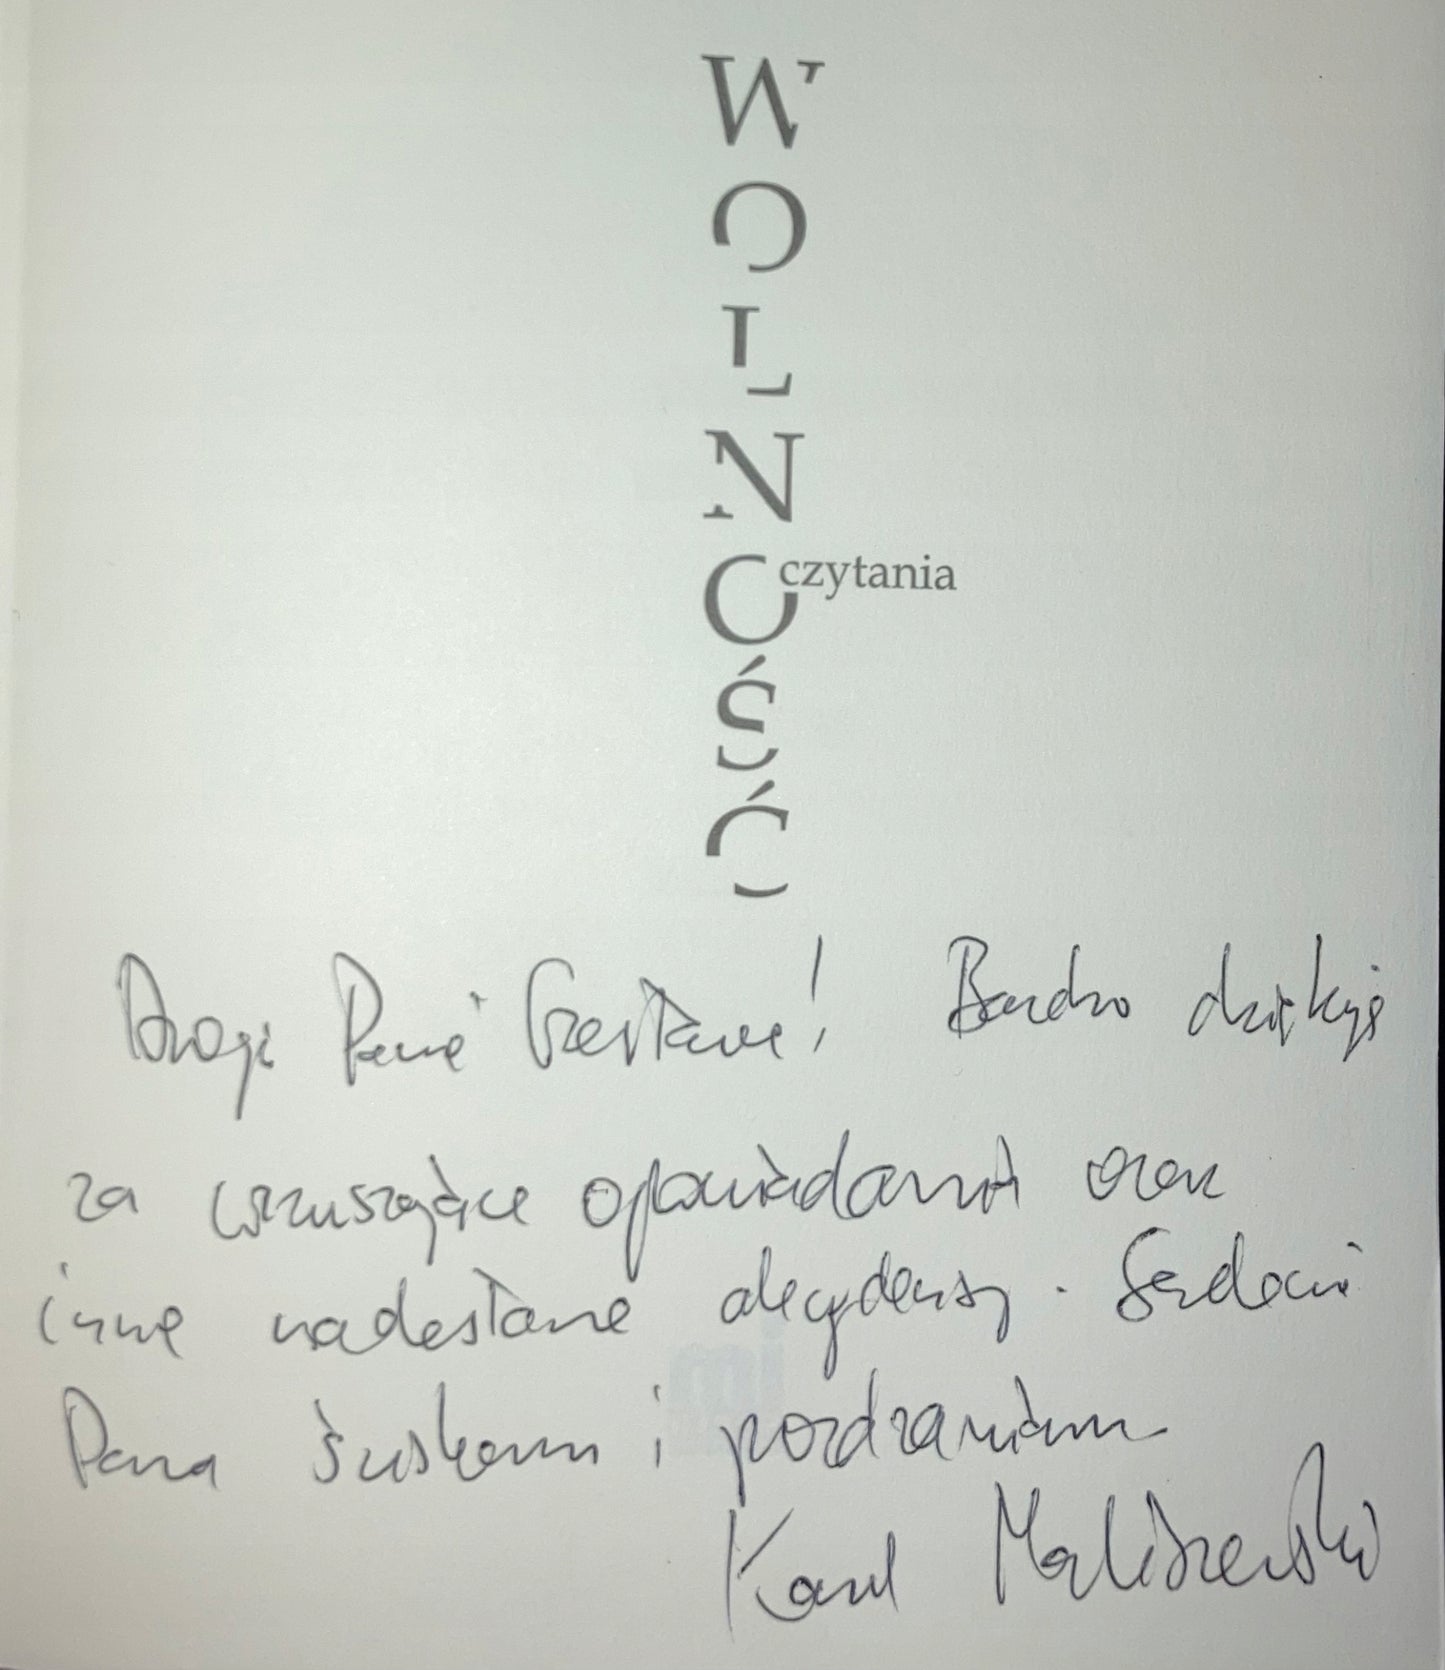 WOLNOŚĆ
czytania
Drogi Panie Czesławie! Bardzo dziękuję
za wzruszające opowiadania oraz
inne nadesłane akcydensy. Serdecznie
Pana ściskam i pozdrawiam
Karol Maliszewski